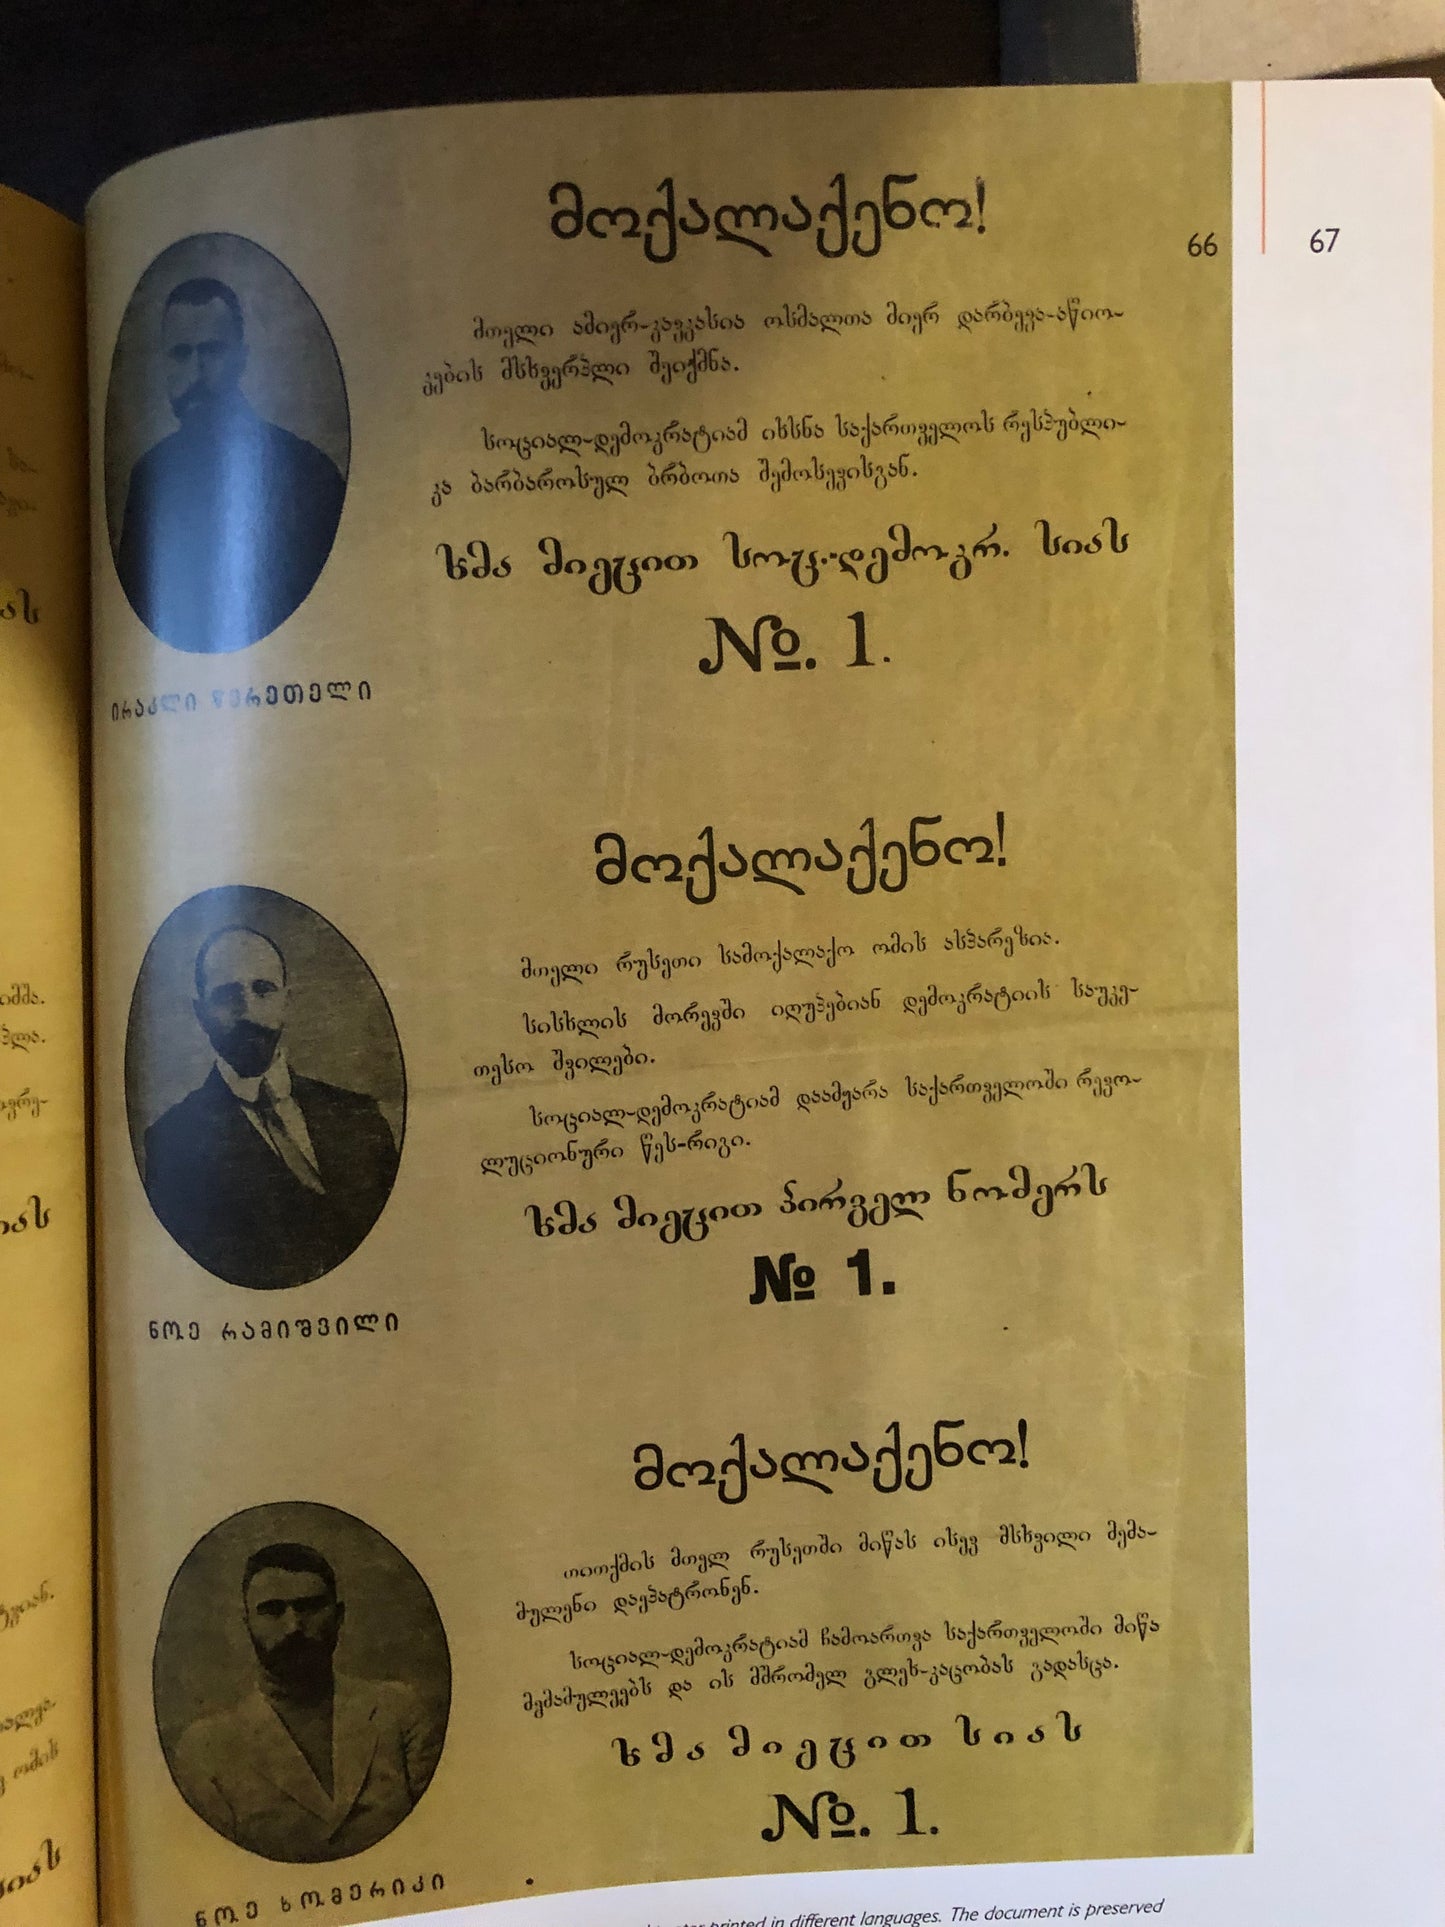 მოქალაქენო!
66
67
მთელი ამიერ-კავკასია ოსმალთა მიერ დარბევა-აწიო-
კების მსხვერპლი შეიქმნა.
სოციალ-დემოკრატიამ იხსნა საქართველოს რესპუბლი-
კა ბარბაროსულ ბრბოთა შემოსევისგან.
ხმა მიეცით სოც.-დემოკრ. სიას
№. 1.
ირაკლი წერეთელი
მოქალაქენო!
მთელი რუსეთი სამოქალაქო ომის ასპარეზია.
სისხლის მორევში იღუპებიან დემოკრატიის საუკე-
თესო შვილები.
სოციალ-დემოკრატიამ დაამყარა საქართველოში რევო-
ლუციონური წეს-რიგი.
ხმა მიეცით პირველ ნომერს
№ 1.
ნოე რამიშვილი
მოქალაქენო!
თითქმის მთელ რუსეთში მიწას ისევ მსხვილი მემა-
მულენი დაეპატრონენ.
სოციალ-დემოკრატიამ ჩამოართვა საქართველოში მიწა
მემამულეებს და ის მშრომელ გლეხ-კაცობას გადასცა.
ხმა მიეცით სიას
№. 1.
ნოე ხომერიკი
printed in different languages. The document is preserved